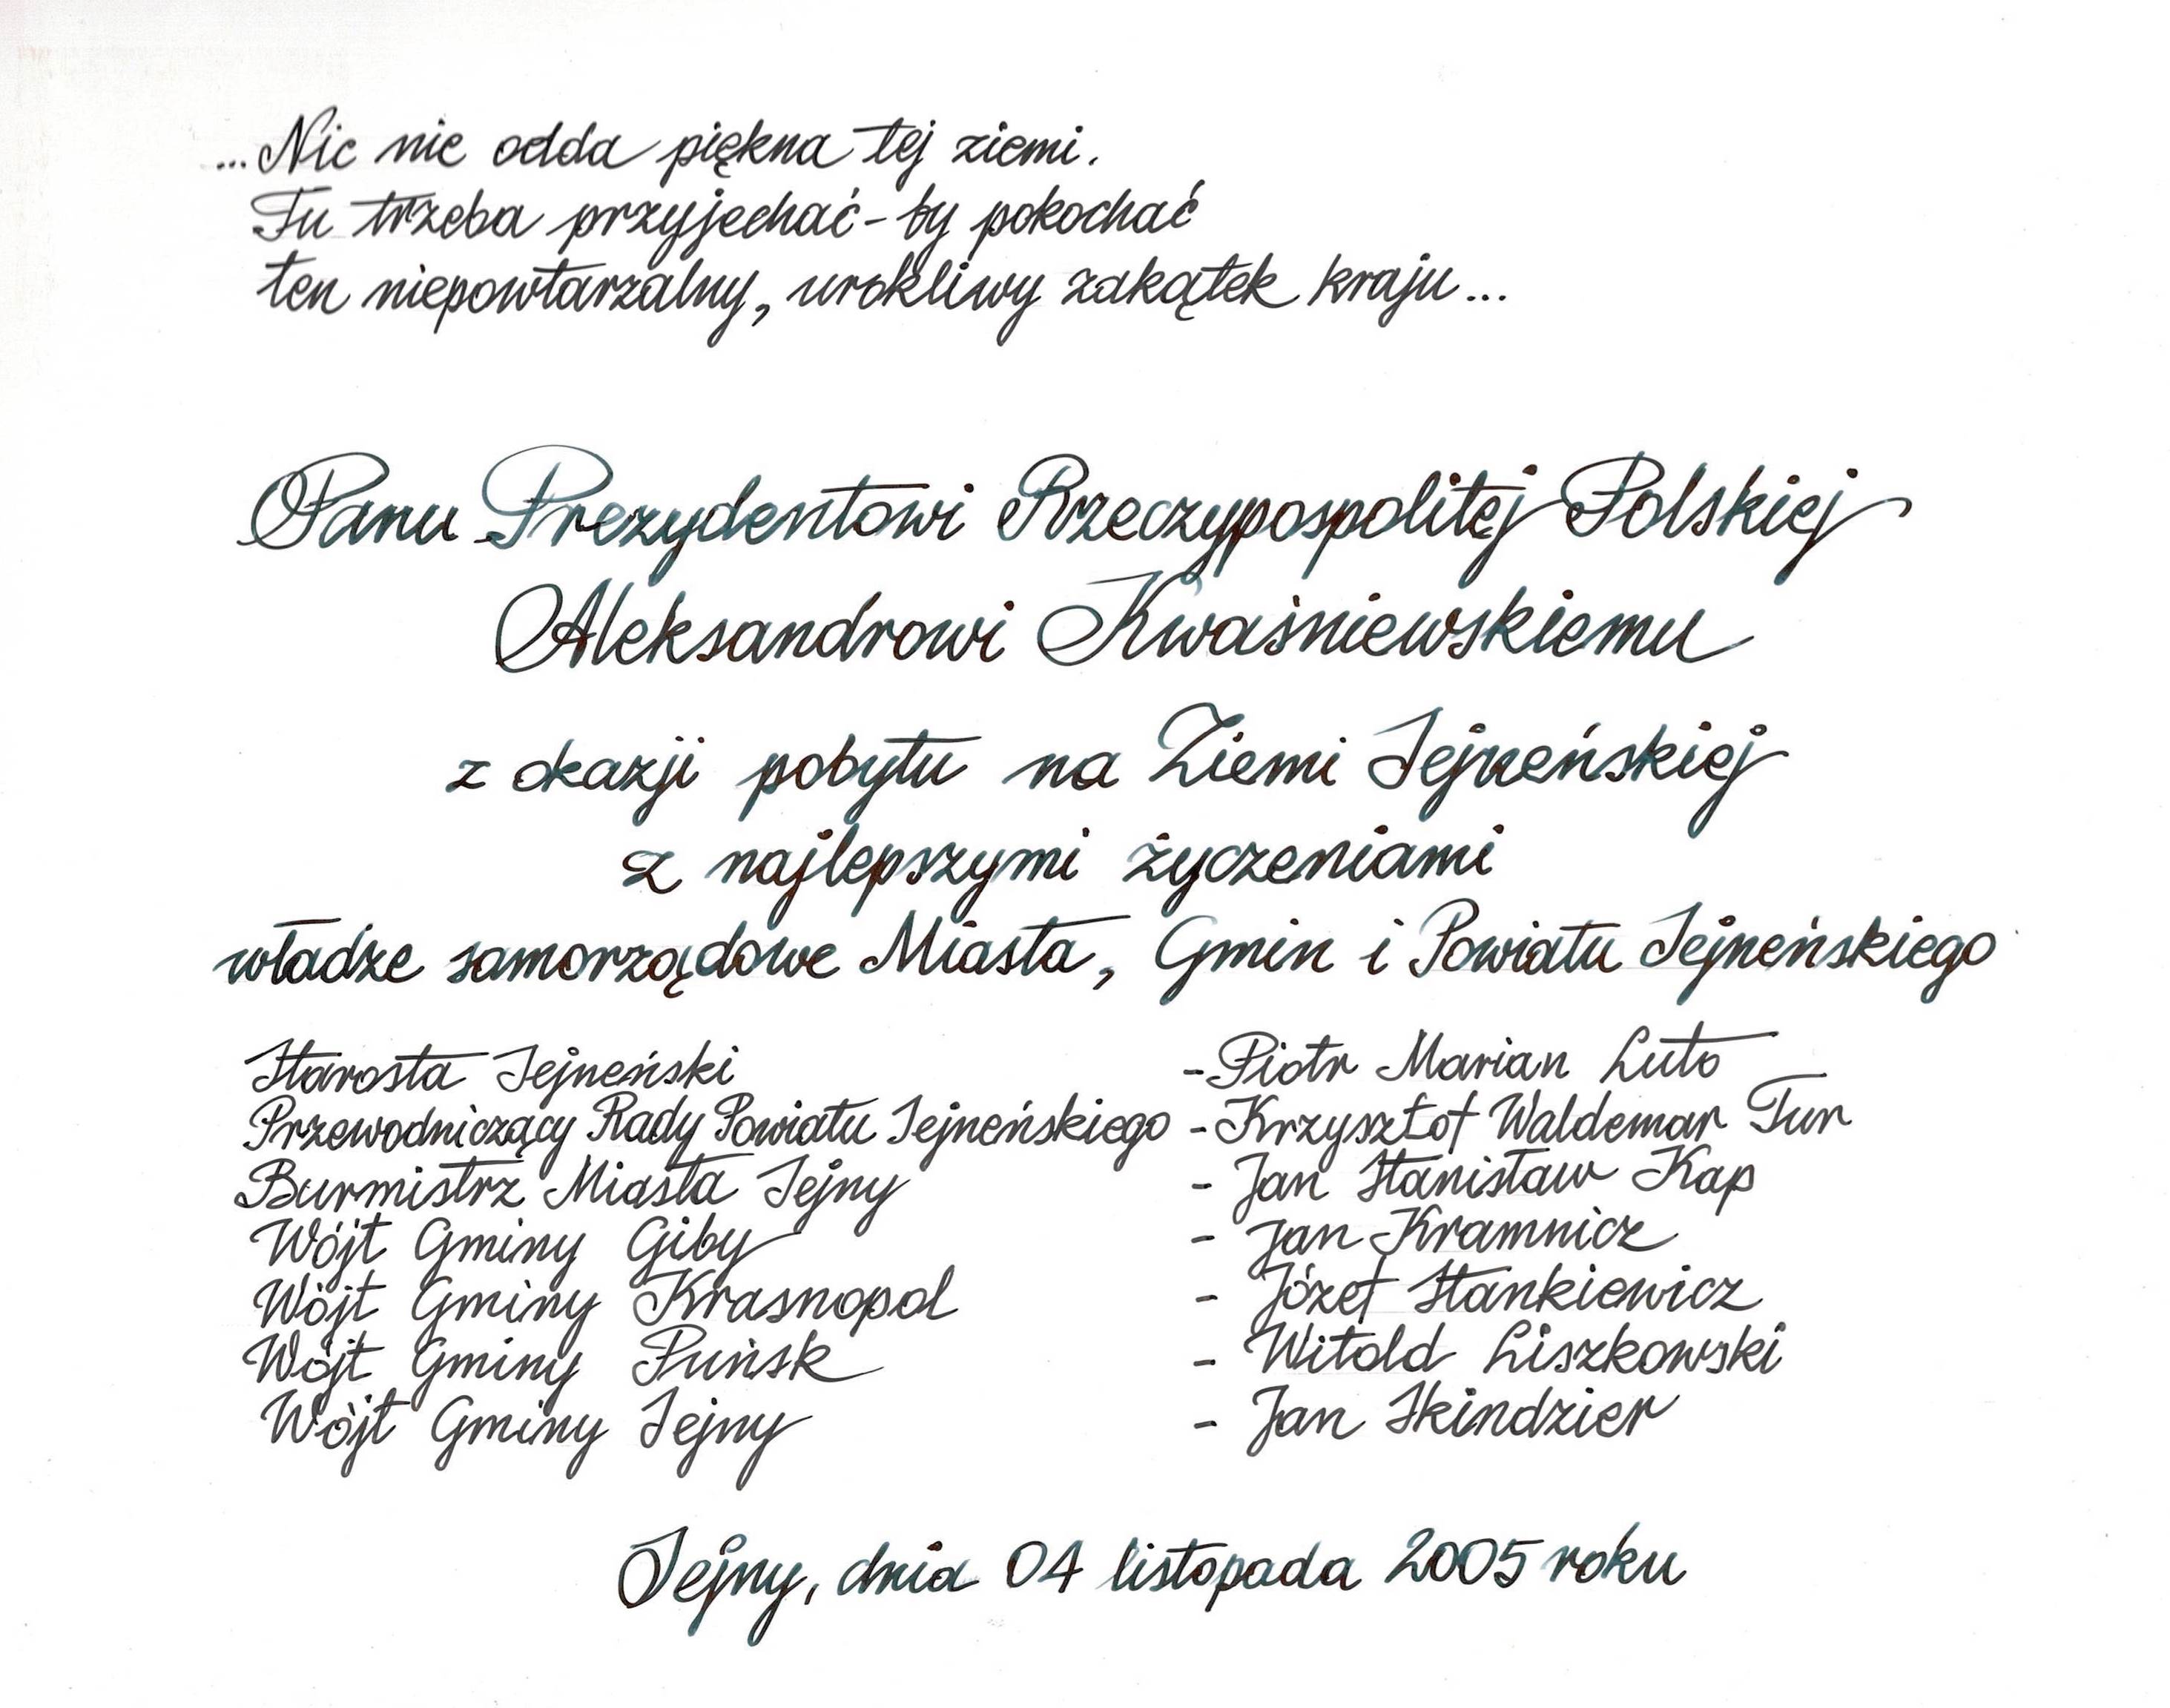 ...Nic nie odda piękna tej ziemi.
Tu trzeba przyjechać - by pokochać
ten niepowtarzalny, urokliwy zakątek kraju...
Panu Prezydentowi Rzeczypospolitej Polskiej
Aleksandrowi Kwaśniewskiemu
z okazji pobytu na Ziemi Sejneńskiej
z najlepszymi życzeniami
władze samorządowe Miasta, Gmin i Powiatu Sejneńskiego
Starosta Sejneński - Piotr Marian Luto
Przewodniczący Rady Powiatu Sejneńskiego - Krzysztof Waldemar Tur
Burmistrz Miasta Sejny - Jan Stanisław Kap
Wójt Gminy Giby - Jan Kramnicz
Wójt Gminy Krasnopol - Józef Stankiewicz
Wójt Gminy Puńsk - Witold Liszkowski
Wójt Gminy Sejny - Jan Skindzier
Sejny, dnia 04 listopada 2005 roku